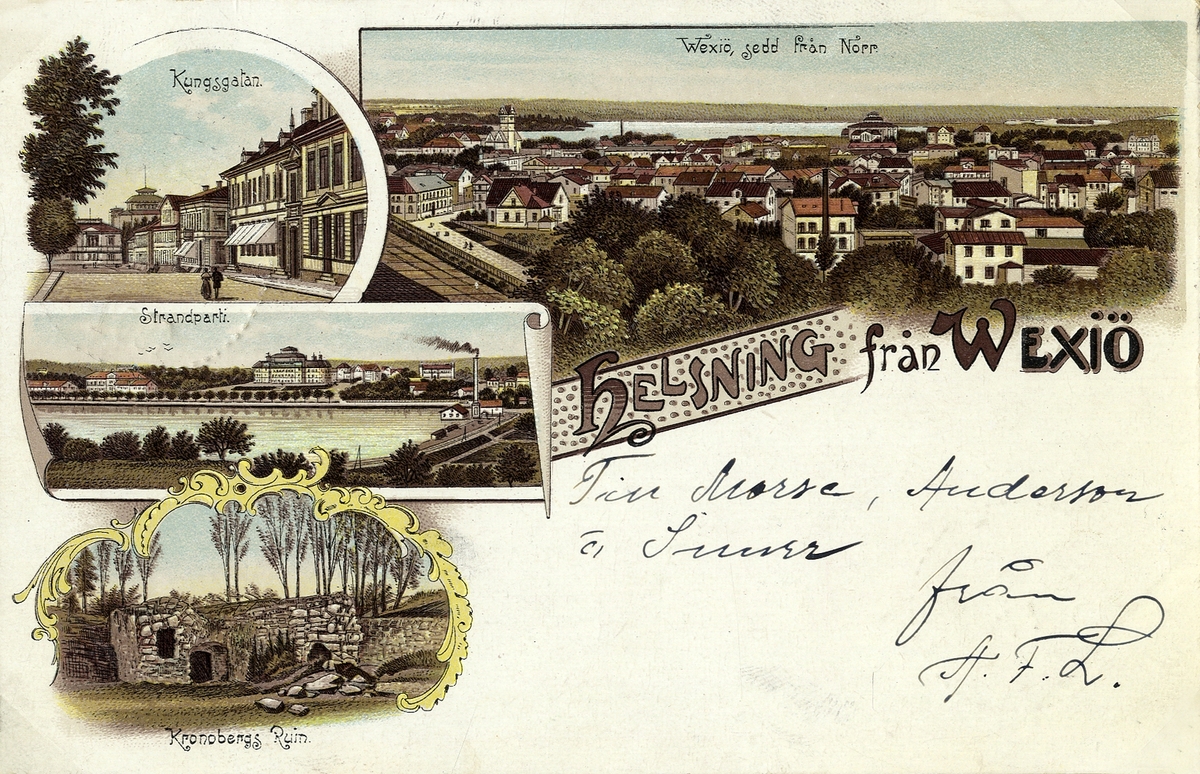 Kungsgatan.
Wexiö, sedd från Norr
Strandparti.
HELSNING från WEXIÖ
Till Morse, Anderson
o
från
A. F. L.
Kronobergs Ruin.